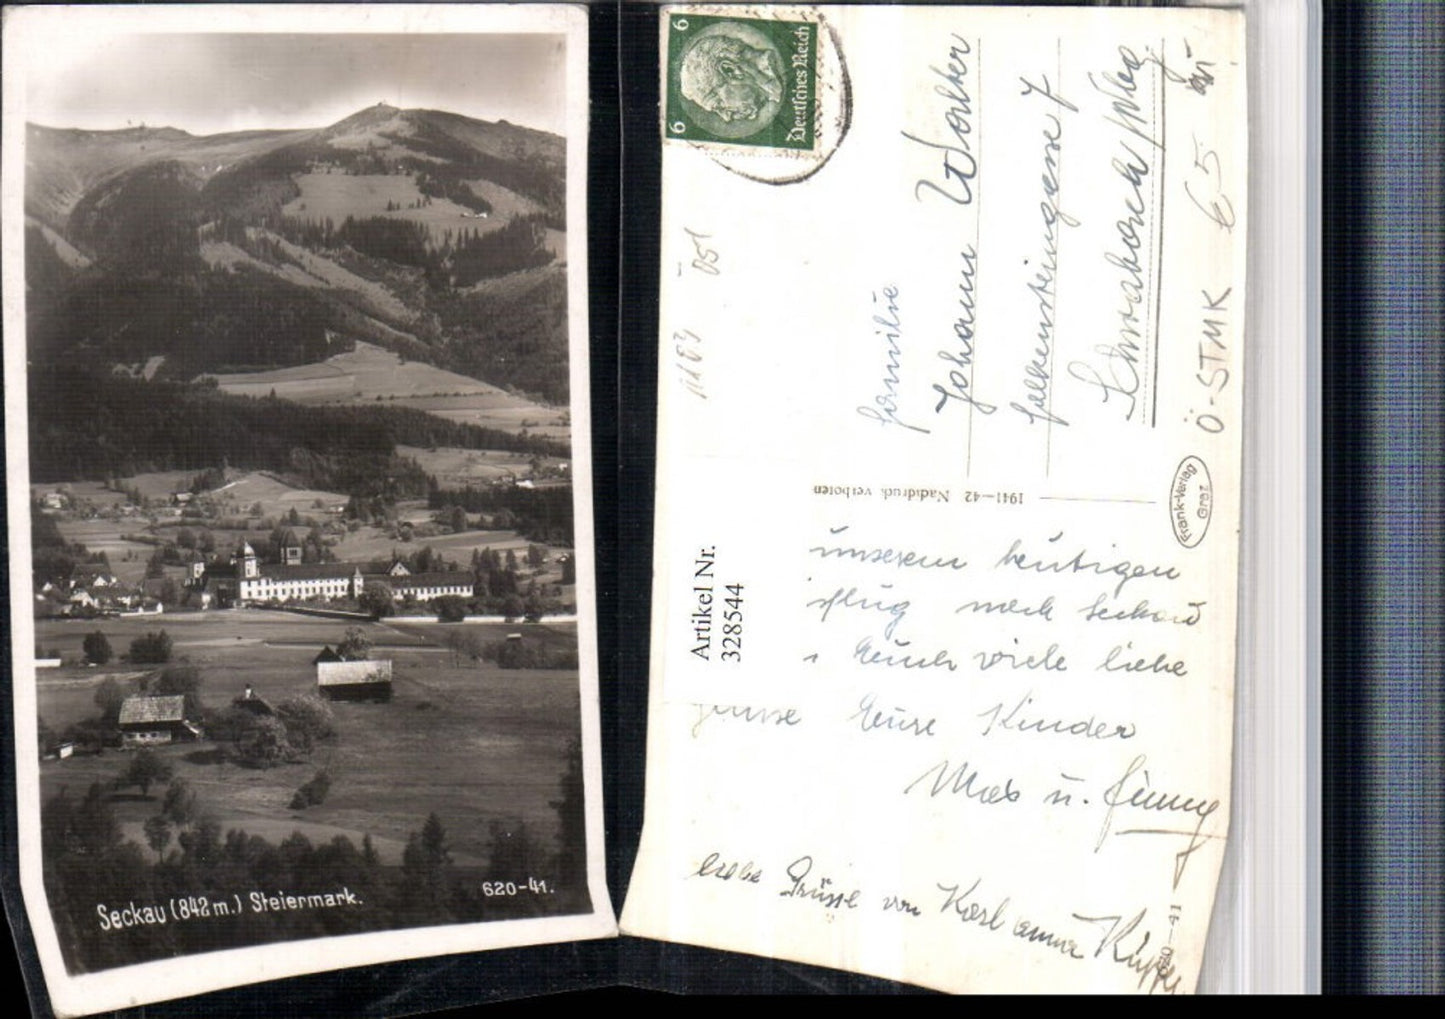 Seckau (842 m.) Steiermark.
620-41.
6
6
Deutsches Reich
1183
051
Familie
Johann Walter
Falkensteingasse 7
€ 5
Ö-STMK
1941—42 Nachdruck verboten
Frank-Verlag
Graz
Artikel Nr.
328544
unserem heutigen
flug nach Seckau
Euch viele liebe
Grüsse Eure Kinder
u.
liebe Grüsse von Karl
620—41